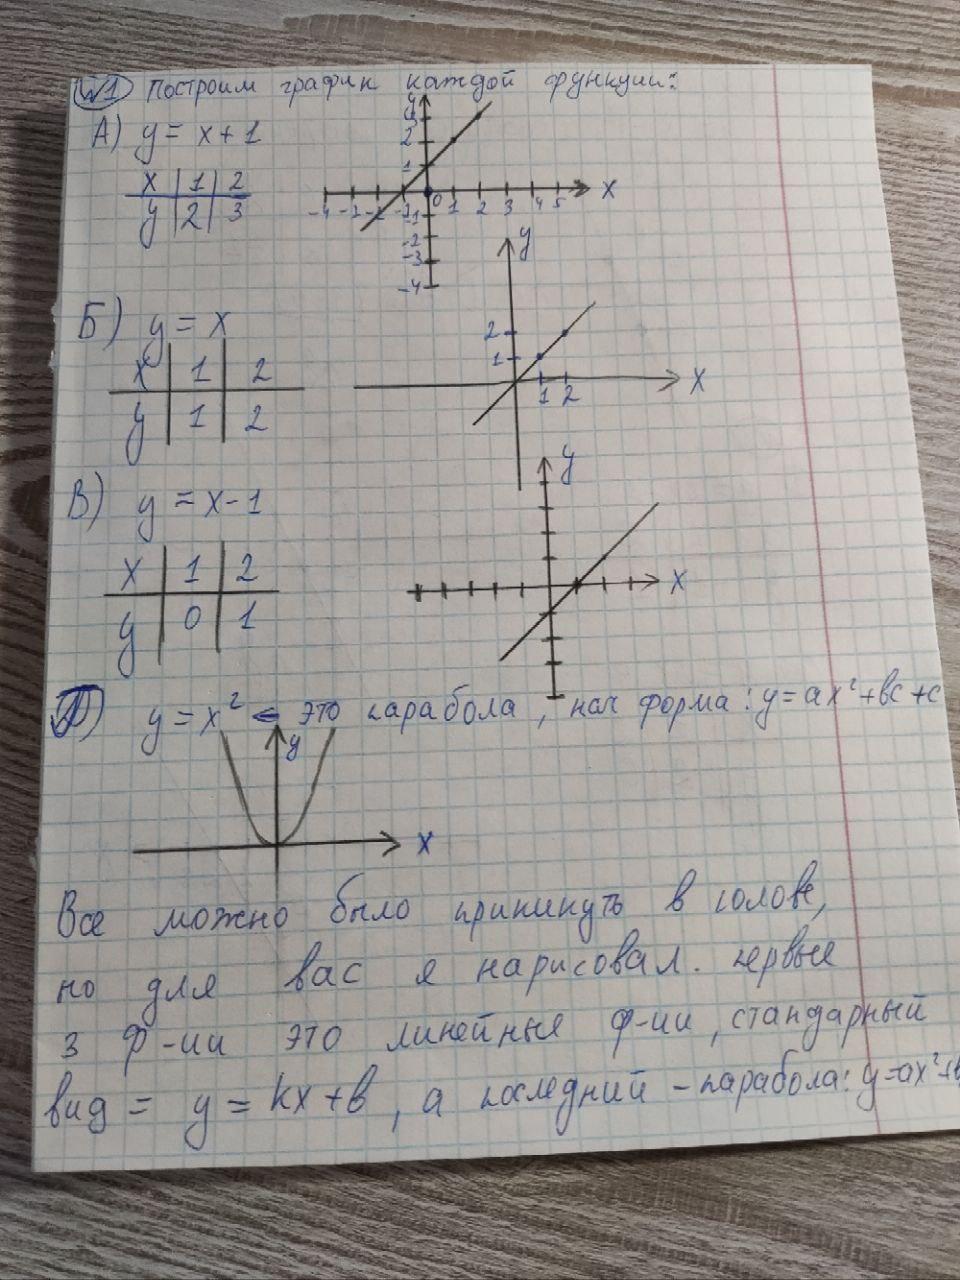 №1 Построим график каждой функции:
А) y = x + 1
x 1 2
y 2 3
y
3
2
1
-4 -3 -2 -1 0 1 2 3 4 5 x
-1
-2
-3
-4
Б) y = x
x 1 2
y 1 2
y
2
1
1 2 x
В) y = x - 1
x 1 2
y 0 1
y
x
y = x² это парабола, нач форма: y = ax² + вc + c
y
x
Все можно было прикинуть в голове,
но для вас я нарисовал. первые
3 ф-ии это линейные ф-ии, стандарный
вид = y = kx + в, а последний - парабола: y = ax² + в